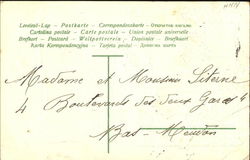 Levelező-Lap — Postkarte — Correspondenzkarte — Открытое письмо
Cartolina postale — Carte postale — Union postale universelle
Brefkort — Postcard — Weltpostverein — Dopisnice — Briefkaart
Karta Korespondencyjna — Tarjeta postal — Дописна карта
Madame et Monsieur Siterne
4 Boulevards des deux Gares 4
Bas Meudon